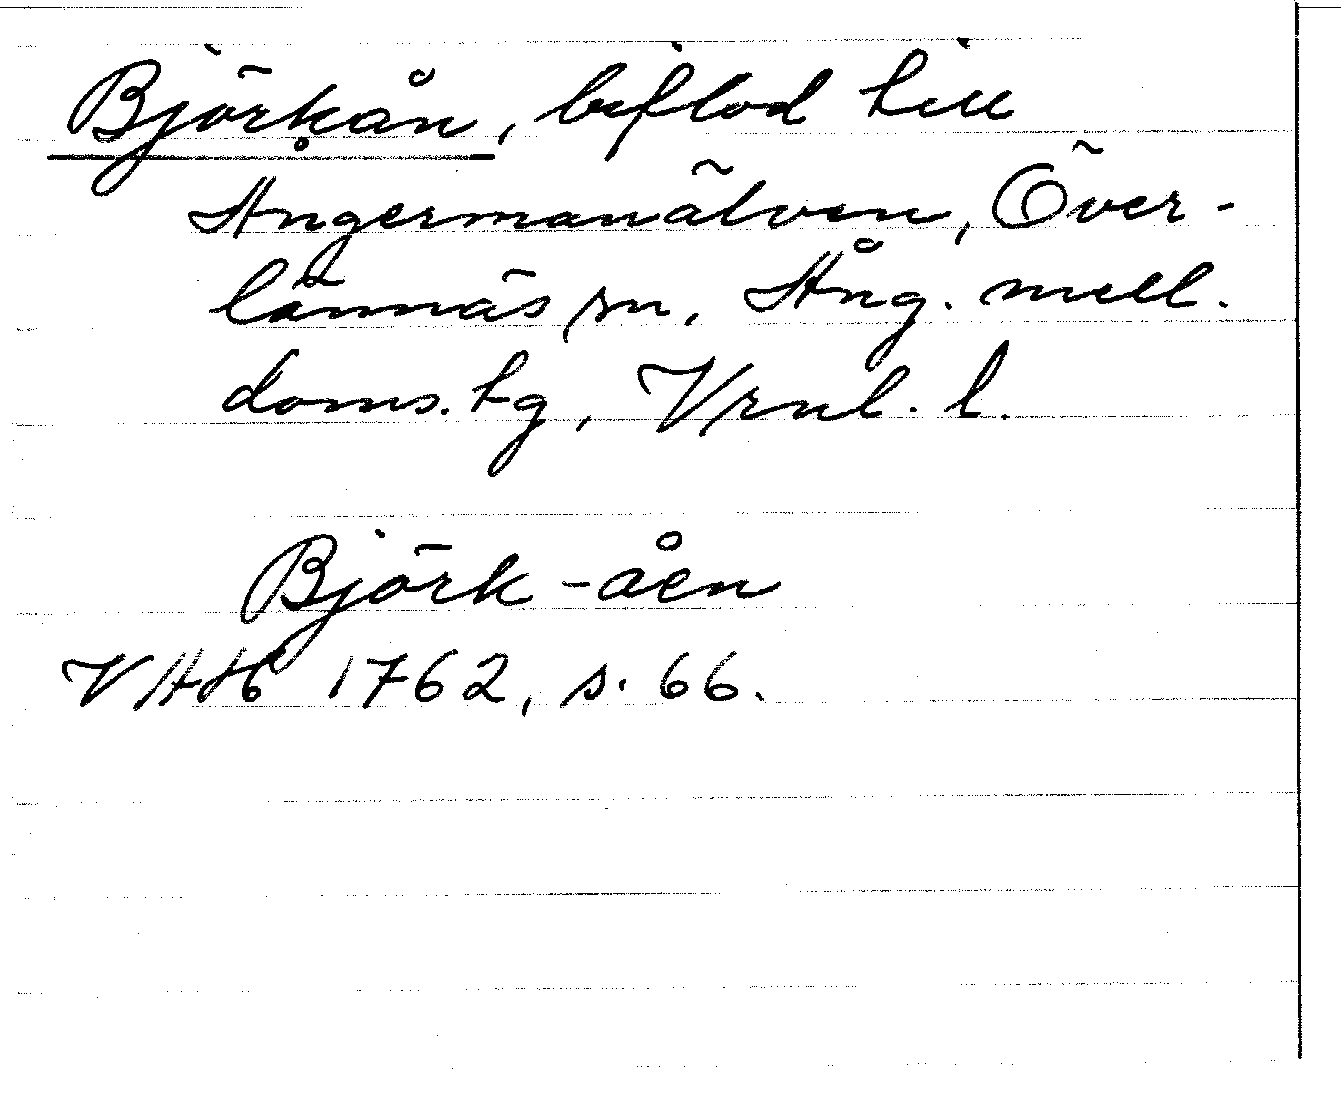 Björkån, biflod till
Ångermanälven, Över-
lännäs sn, Ång. mell.
doms. tg, Vrnl. l.
Björk-åen
VHAH 1762, s. 66.